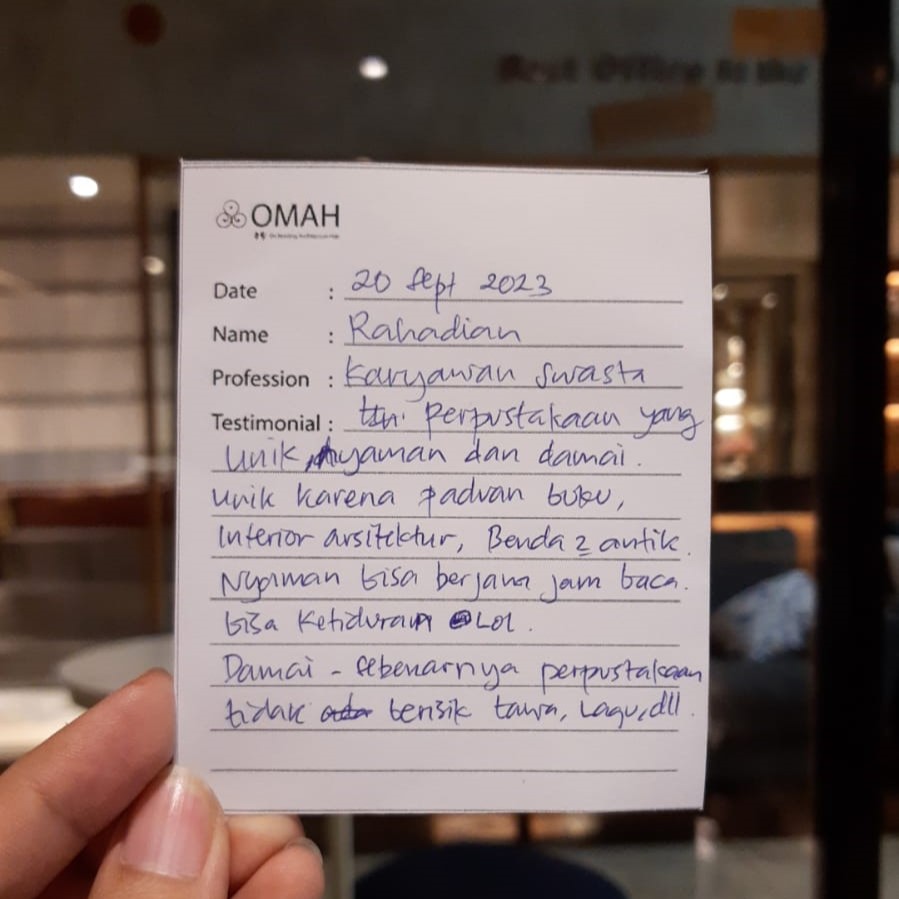 Best Office in the
OMAH
Date : 20 Sept 2023
Name : Rahadian
Profession : Karyawan Swasta
Testimonial : Perpustakaan yang
Unik, nyaman dan damai.
Unik karena paduan buku,
Interior arsitektur, Benda2 antik.
Nyaman bisa berjam jam baca.
bisa Ketiduran LOL.
Damai - sebenarnya perpustakaan
tidak berisik tawa, Lagu, dll.